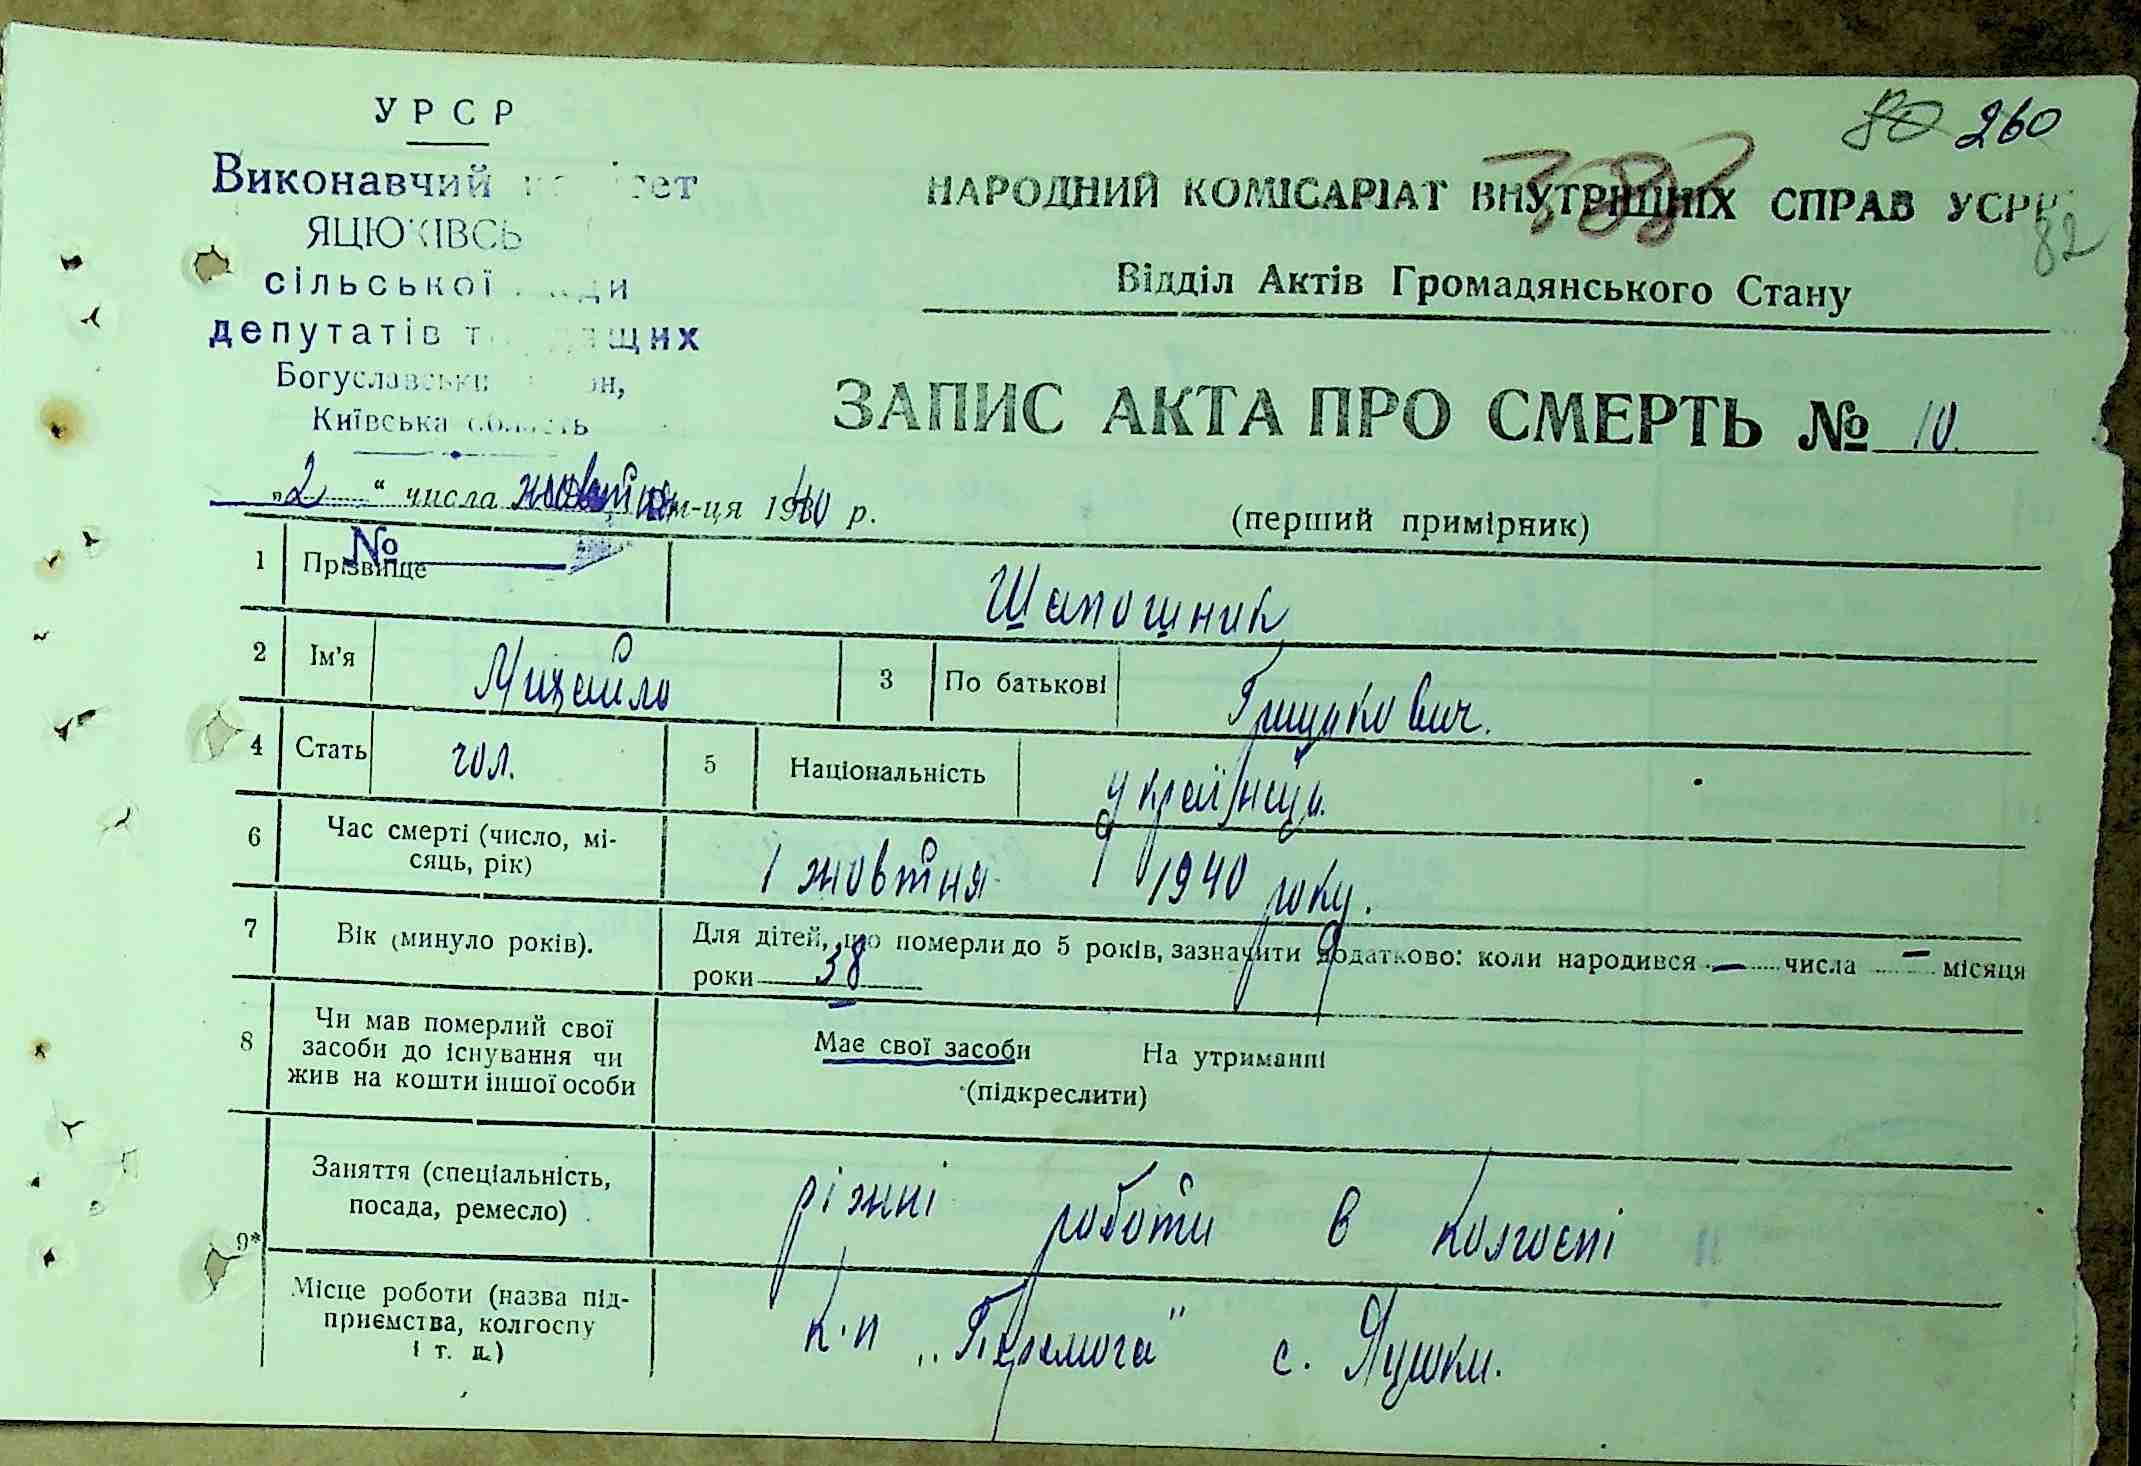 УРСР
80 260
Виконавчий комітет
НАРОДНИЙ КОМІСАРІАТ ВНУТРІШНІХ СПРАВ УСРР
82
сільської ради
Відділ Актів Громадянського Стану
депутатів трудящих
Богуславський район,
Київська область
ЗАПИС АКТА ПРО СМЕРТЬ № 10.
„2“ числа жовтня м-ця 1940 р.
(перший примірник)
№
1 Прізвище Шапошник
2 Ім'я Михайло 3 По батькові Грицькович.
4 Стать чол. 5 Національність українець.
6 Час смерті (число, мі-
сяць, рік) 1 жовтня 1940 року.
7 Вік (минуло років). Для дітей, що померли до 5 років, зазначити додатково: коли народився — числа — місяця
роки 38
8 Чи мав померлий свої
засоби до існування чи
жив на кошти іншої особи
Має свої засоби На утриманні
(підкреслити)
9* Заняття (спеціальність,
посада, ремесло)
ріжні роботи в колгоспі
Місце роботи (назва під-
приємства, колгоспу
і т. д.)
к-п „Перемога" с.